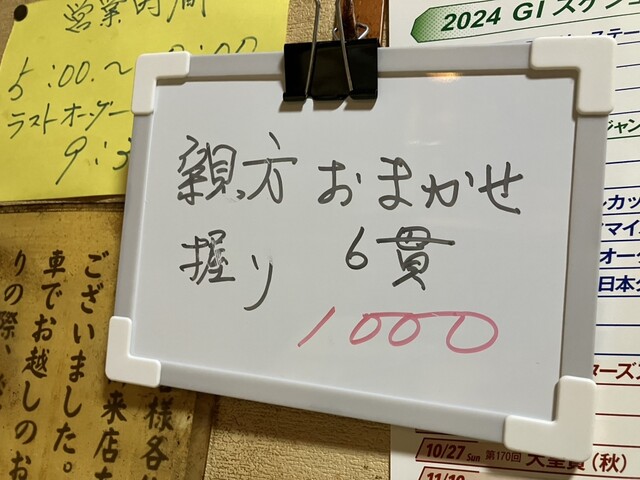 営業時間
5:00.〜
ラストオーダー
9:3
親方おまかせ
握り 6貫
1000
2024 GI スケジュ
ございました。
車でお越しのお
りの際、
様各
来店
ジャン
ルカッ
マイ
オー
日本
ターズ
10/27 Sun 第170回 天皇賞(秋)
11/10